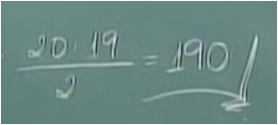 20.19
2
= 190